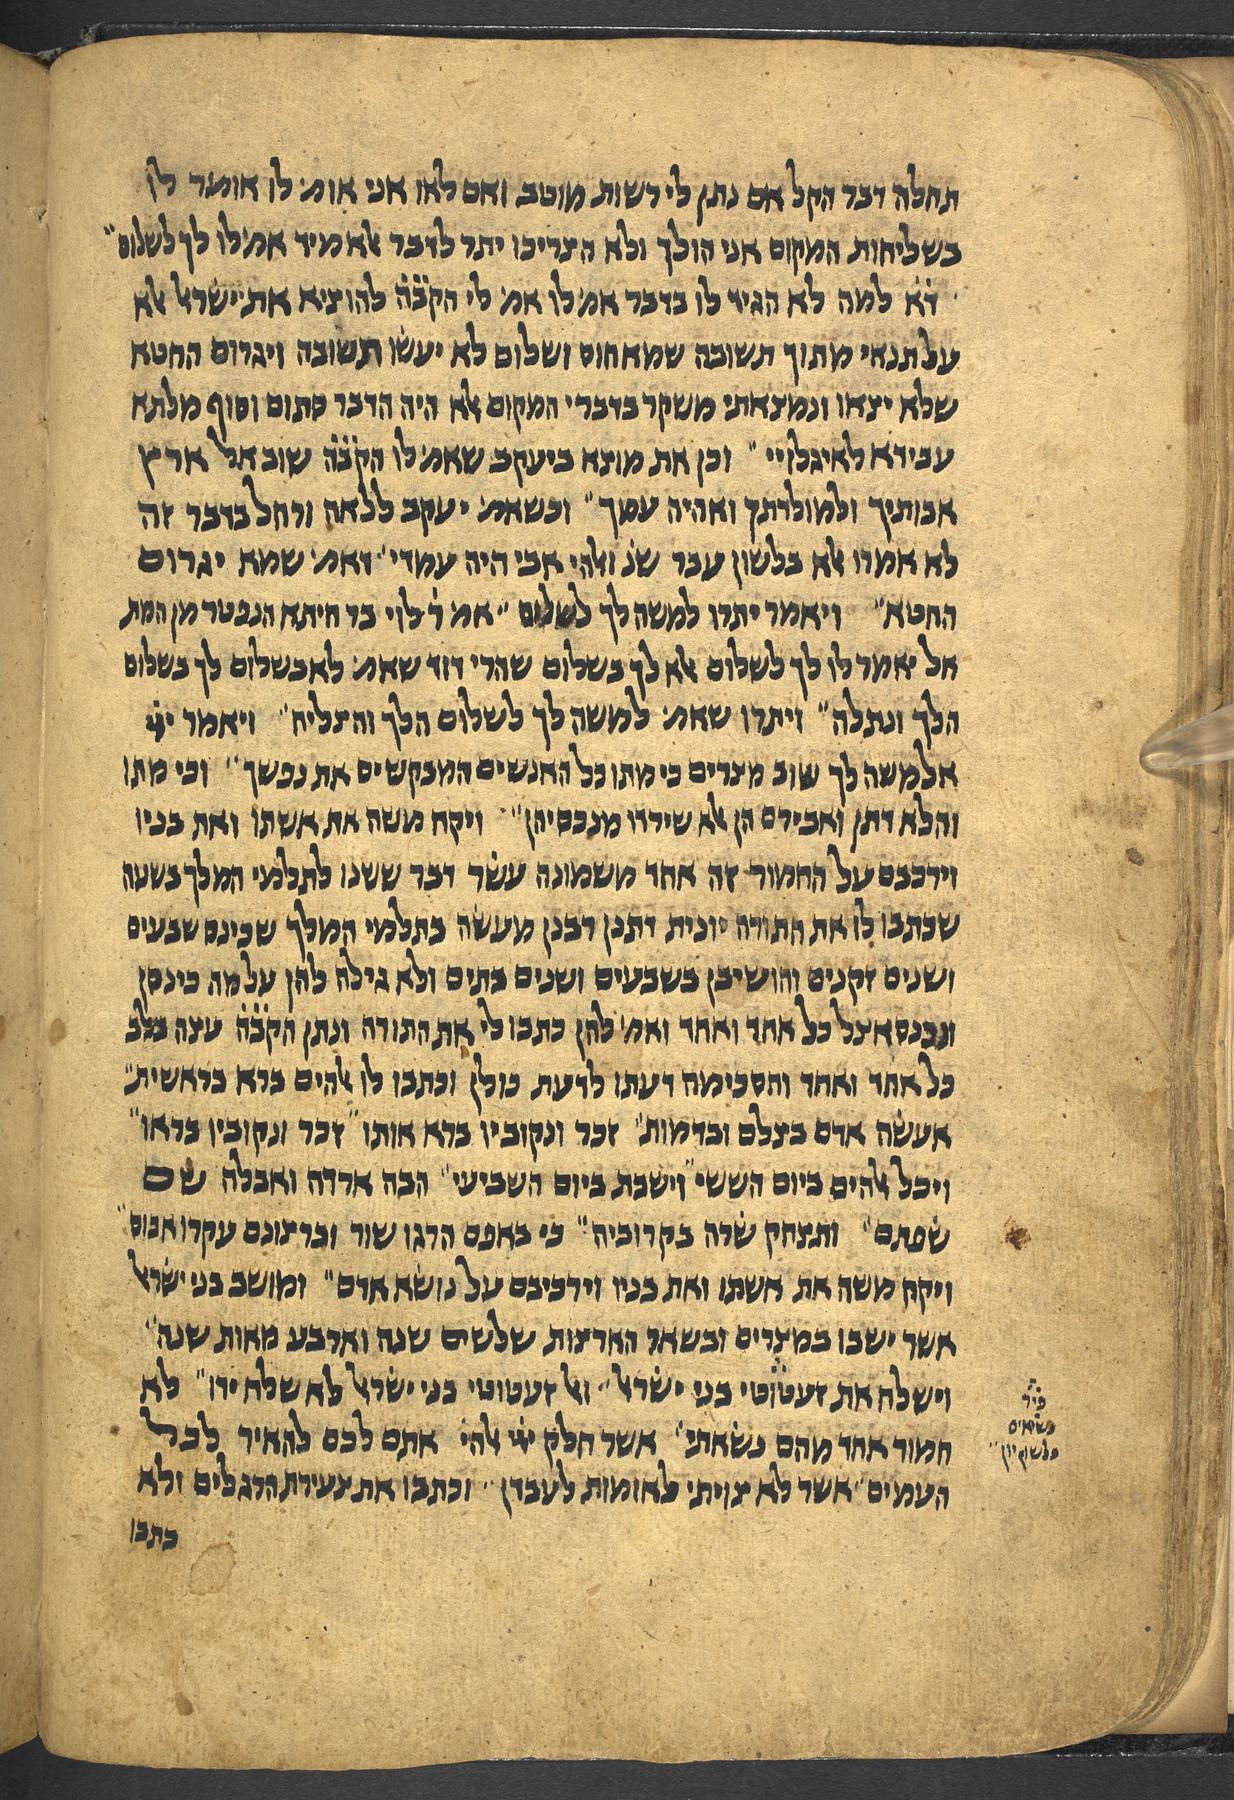 תחלה דבר הקל אם נתן לי רשות מוטב ואם לאו אני אומ' לו אומר לו
בשליחות המקום אני הולך ולא הצריכו יתר לדבר אלא מיד אמ' לו לך לשלום"
ד"א למה לא הגיד לו בדבר אמ' לו אמ' לי הקב"ה להוציא את ישראל אלא
על תנאי מתוך תשובה שמא חוס ושלום לא יעשו תשובה ויגרום החטא
שלא יצאו ונמצאתי משקר בדברי המקום אלא היה הדבר סתום וסוף מלתא
עבידא לאיגלויי" וכן את מוצא ביעקב שאמ' לו הקב"ה שוב אל ארץ
אבותיך ולמולדתך ואהיה עמך" וכשאמ' יעקב ללאה ורחל בדבר זה
לא אמרו אלא בלשון עבר שנ' ואלהי אבי היה עמדי" דאמ' שמא יגרום
החטא" ויאמר יתרו למשה לך לשלום" אמ' ר' לוי בר חיתא הנפטר מן המת
אל יאמר לו לך לשלום אלא לך בשלום שהרי דוד שאמ' לאבשלום לך בשלום
הלך ונתלה" ויתרו שאמ' למשה לך לשלום הלך והצליח" ויאמר ייי
אל משה לך שוב מצרים כי מתו כל האנשים המבקשים את נפשך" וכי מתו
והלא דתן ואבירם הן אלא שירדו מנכסיהן" ויקח משה את אשתו ואת בניו
וירכבם על החמור זה אחד משמונה עשר דבר ששנו לתלמי המלך בשעה
שכתבו לו את התורה יונית דתנן רבנן מעשה בתלמי המלך שכינס שבעים
ושנים זקנים והושיבן בשבעים ושנים בתים ולא גילה להן על מה כינסן
ונכנס אצל כל אחד ואחד ואמ' להן כתבו לי את התורה ונתן הקב"ה עצה בלב
כל אחד ואחד והסכימה דעתו לדעת כולן וכתבו לו אלהים ברא בראשית"
אעשה אדם בצלם ובדמות" זכר ונקוביו ברא אותו" זכר ונקוביו בראו"
ויכל אלהים ביום הששי" וישבת ביום השביעי" הבה ארדה ואבלה שם
שפתם" ותצחק שרה בקרוביה" כי באפם הרגו שור וברצונם עקרו אבוס"
ויקח משה את אשתו ואת בניו וירכיבם על נושא אדם" ומושב בני ישראל
אשר ישבו במצרים ובשאר הארצות שלשים שנה וארבע מאות שנה"
וישלח את זעטוטי בני ישראל" ואל זעטוטי בני ישראל לא שלח ידו" לא
חמור אחד מהם נשאתי" אשר חלק ייי אלהי' אתם לכם להאיר לכל
העמים" אשר לא צויתי לאומות לעבדן" וכתבו את צעירת הרגלים ולא
כתבו